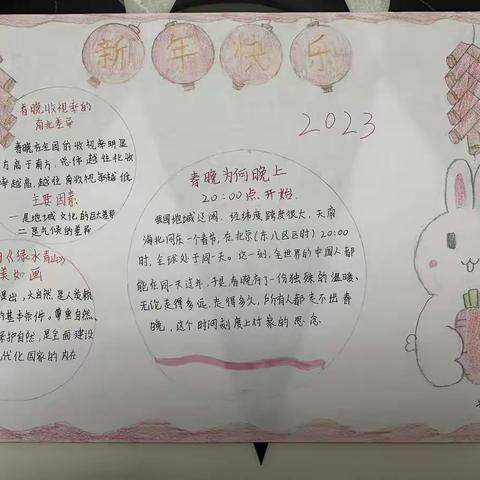 新年快乐
2023
春晚收视率的
南北差异
春晚在全国的收视率明显
方高于南方,总体越往北收
率越高,越往南收视率越低
主要因素
一是地域文化的巨大差异
二是气候的差异
《绿水青山》
美如画
提出,大自然是人类赖
的基本条件。尊重自然、
保护自然,是全面建设
代化国家的内在
春晚为何晚上
20:00点开始
我国地域辽阔,经纬度跨度很大,天南
海北同庆一个春节,在北京(东八区区时)20:00
时,全球处于同一天。这一刻,全世界的中国人都
能在同一天过年,于是春晚有了一份独特的温暖,
无论走得多远,走得多久,所有人都走不出春
晚,这个时间刻度上对家的思念